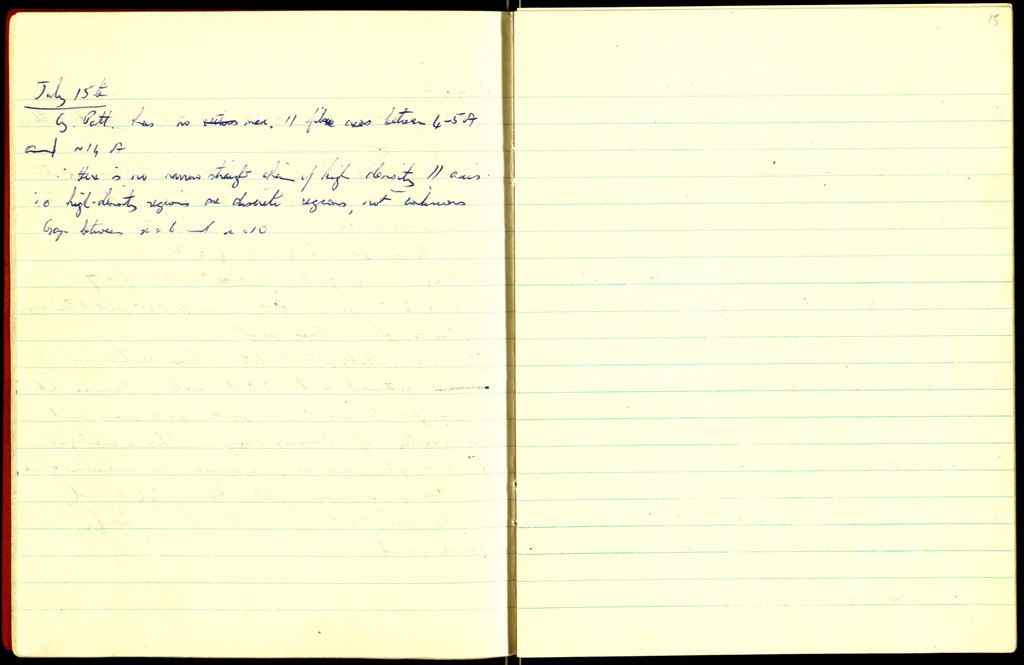 July 15th
Cy. Patt. has no max. // fibre axis between 4-5 A
and ~14 A
∴ there is no narrow straight chain of high density // axis.
i.e. high-density regions are discrete regions, not continuous
Gap between x=6 and x=10
15